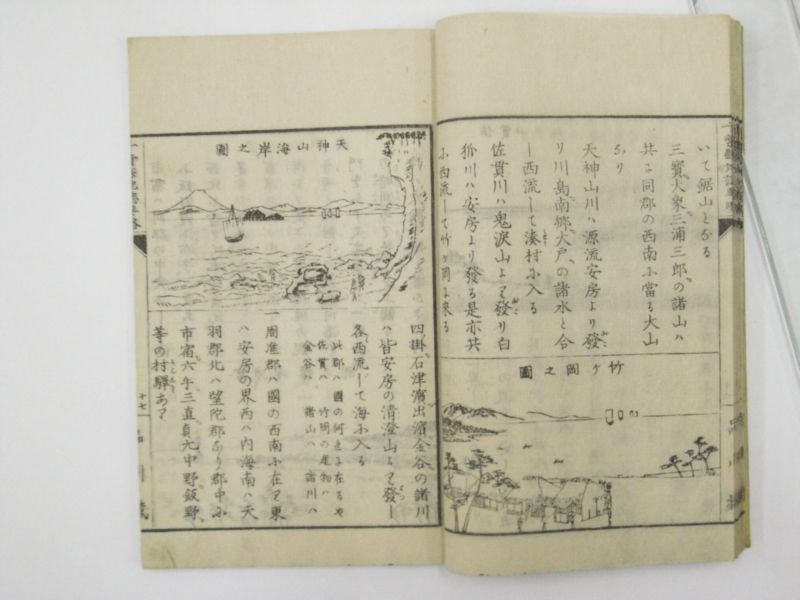 いて鋸山となる
三寶、大象、三浦三郎、の諸山ハ
共に同郡の西南に當る大山
なり
天神山川ハ源流安房より發
り川島南郷大戸、の諸水と合
し西流して湊村に入る
佐貫川ハ鬼淚山より發り白
狐川ハ安房より發る是亦共
に西流して竹ヶ岡に來る
竹ヶ岡之圖
天神山海岸之圖
四掛石津濱出濱金谷の諸川
ハ皆安房の清澄山より發し
各西流して海に入る
此郡ハ國の何れに在るや
佐貫ハ 竹岡の産物ハ
金谷ハ 諸山ハ 諸川ハ
一周准郡ハ國の西南に在り東
ハ安房の界西ハ内海南ハ天
羽郡北ハ望陀郡なり郡中に
市宿六手三直貞元中野飯野、
等の村驛あり
十七